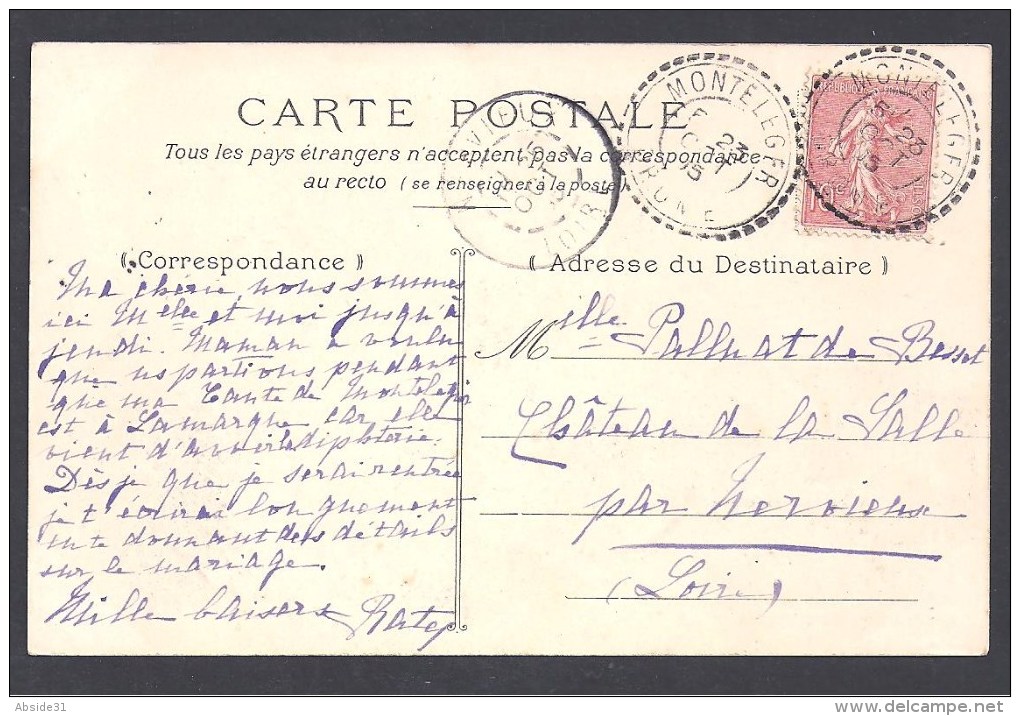 CARTE POSTALE
Tous les pays étrangers n'acceptent pas la correspondance
au recto (se renseigner à la poste)
MONTELEGER
23
OCT
05
DROME
MONTELEGER
23
OCT
05
DROME
REPUBLIQUE
10
NERVIEUX
OCT
05
LOIRE
Correspondance
Ma chérie, nous sommes
ici Melle et moi jusqu'à
jeudi. Maman a voulu
que ns partions pendant
que ma Tante de Monteléger
est à Lamarque car elle
vient d'avoir la diphterie.
Dès je que je serai rentrée
je t'écrirai longuement
en te donnant des détails
sur le mariage.
Mille baisers
Adresse du Destinataire
Mlle Palluat de Besset
Château de la Salle
par Nervieux
(Loire)
Abside31
www.delcampe.net